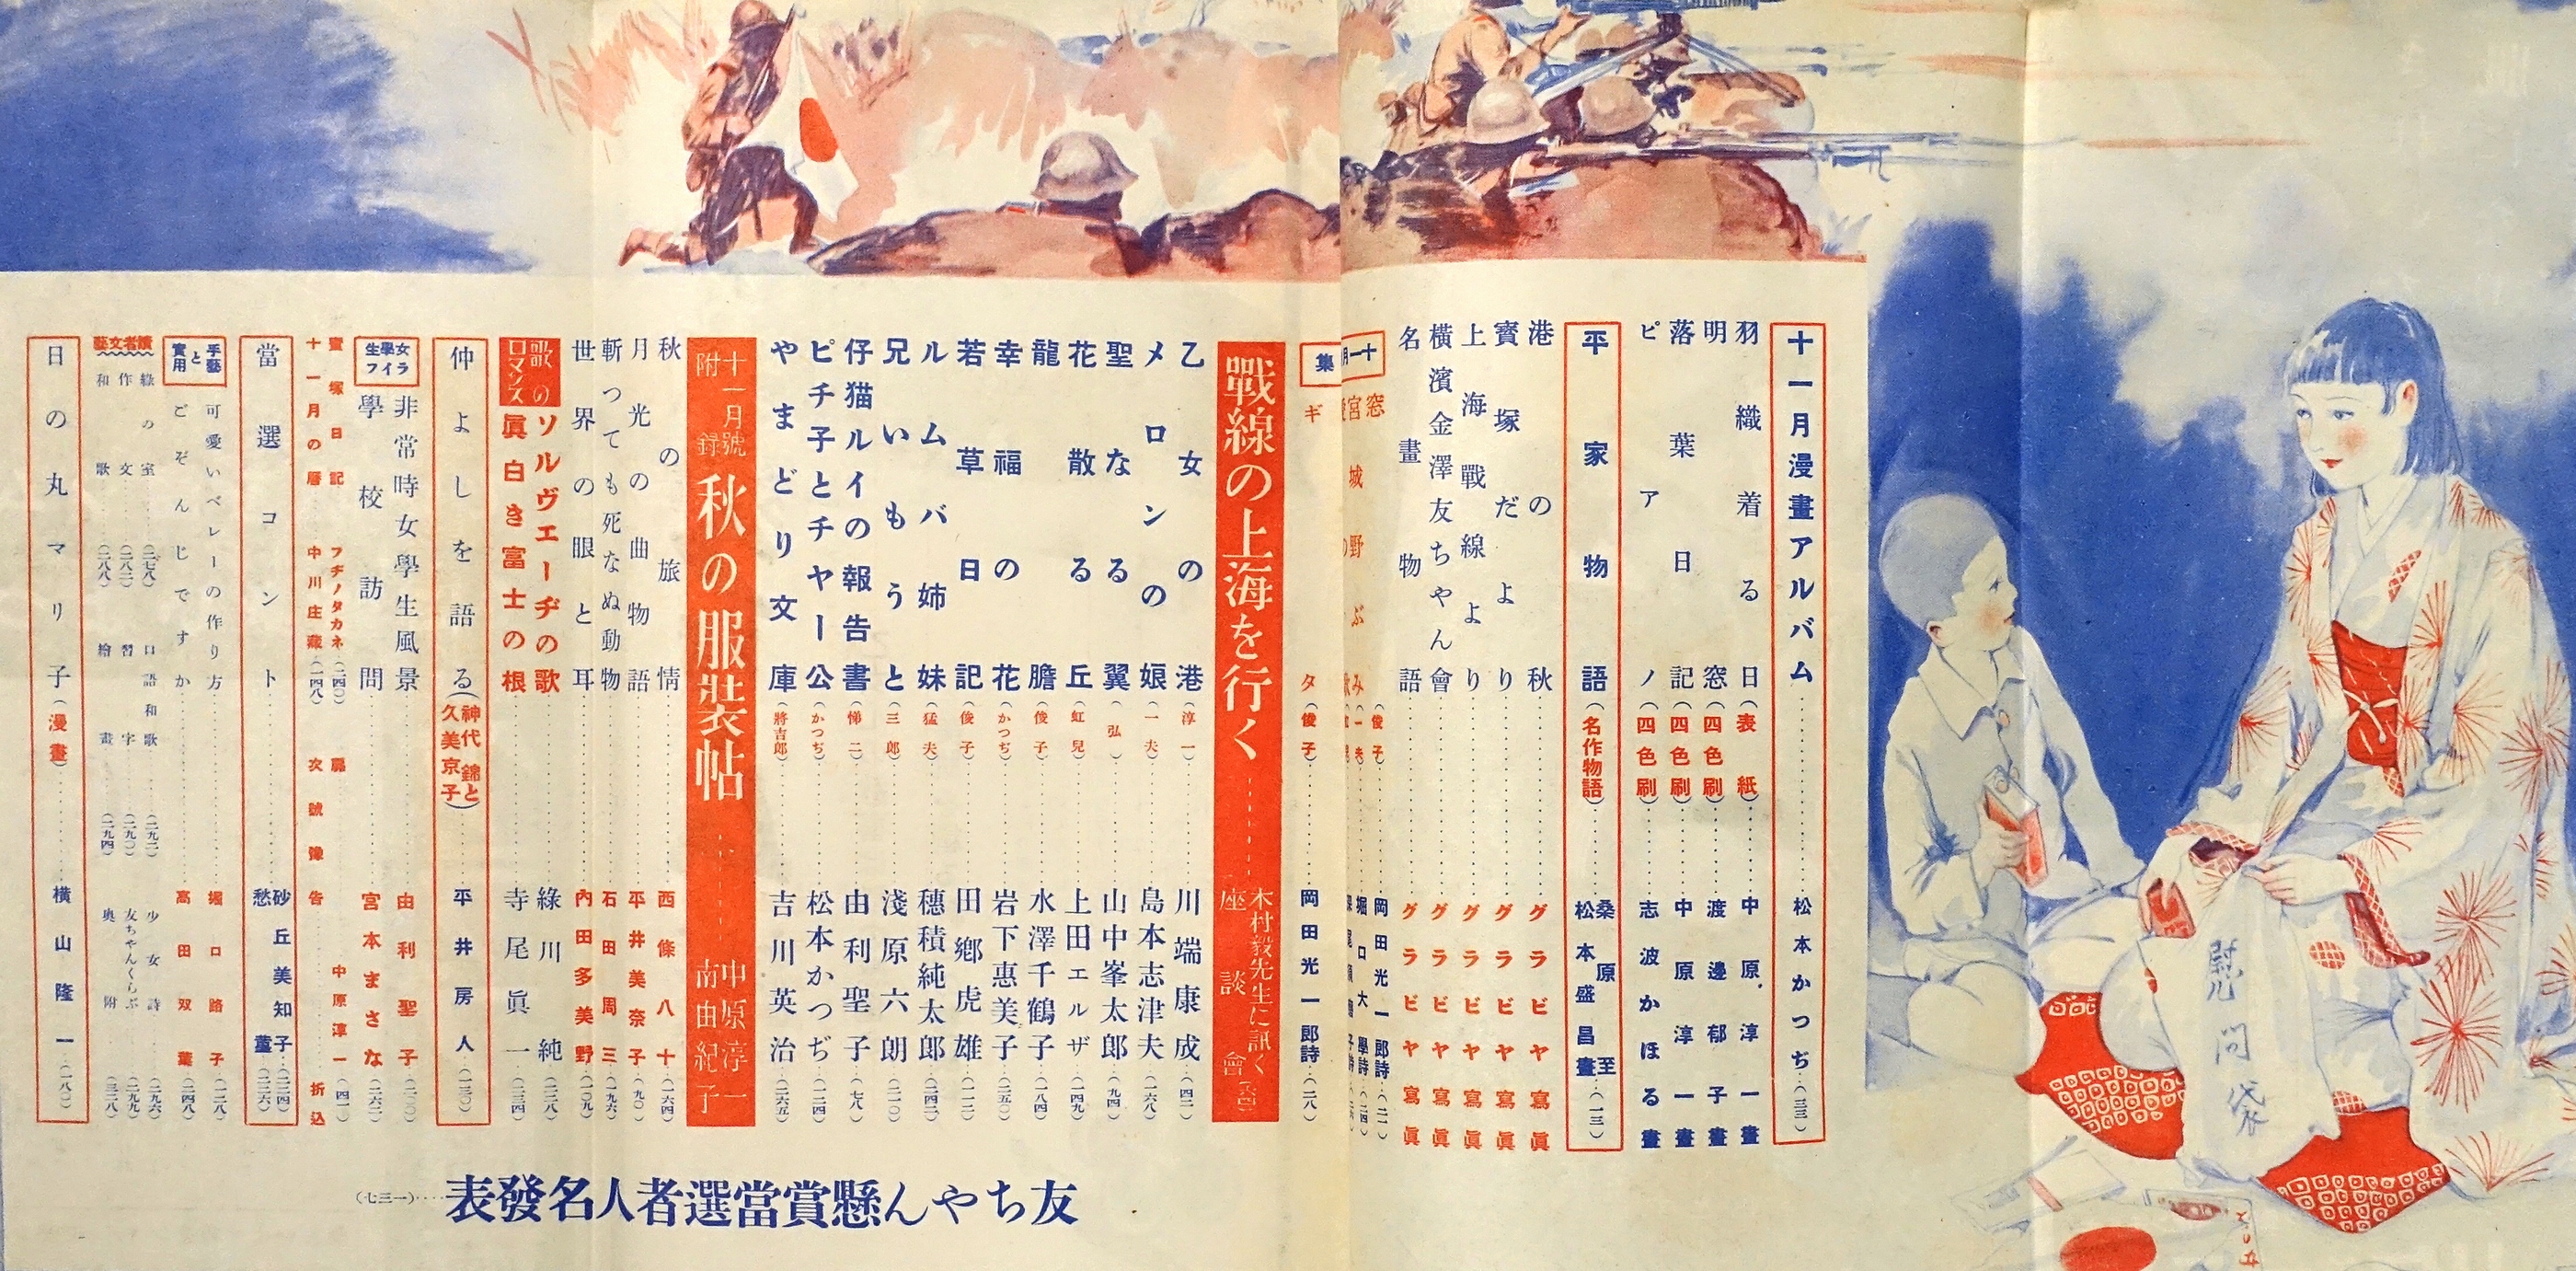 十一月漫畫アルバム……松本かつぢ(三三)
羽織着る日(表紙)……中原淳一畫
明窓(四色刷)……渡邊郁子畫
落葉日記(四色刷)……中原淳一畫
ピアノ(四色刷)……志波かほる畫
平家物語(名作物語)……桑原至 松本盛昌畫(一三)
港の秋……グラビヤ寫眞
寳塚だより……グラビヤ寫眞
上海戰線より……グラビヤ寫眞
横濱金澤友ちゃん會……グラビヤ寫眞
名畫物語……グラビヤ寫眞
十一月
集
窓(俊子)……岡田光一郎詩
ギタ(俊子)……岡田光一郎詩(二八)
戰線の上海を行く……木村毅先生に訊く座談會
乙女の港(淳一)……川端康成(四二)
メロンの娘(一夫)……島本志津夫(一六八)
聖なる翼(弘)……山中峯太郎(九四)
花散る丘(虹兒)……上田エルザ(一四九)
龍膽(俊子)……水澤千鶴子(一八四)
幸福の花(かつぢ)……岩下惠美子(二五〇)
若草日記(俊子)……田郷虎雄(一一二)
ルムバ姉妹(猛夫)……穗積純太郎(二四二)
兄いもうと(三郎)……淺原六朗(二一〇)
仔猫ルイの報告書(悌二)……由利聖子(七八)
ピチ子とチャー公(かつぢ)……松本かつぢ(一二四)
やまどり文庫(將吉郎)……吉川英治(二六五)
十一月號附録 秋の服裝帖……中原淳一 南由紀子
秋の旅情……西條八十(一六四)
月光の曲物語……平井美奈子(九〇)
斬っても死なぬ動物……石田周三(一九六)
世界の眼と耳……内田多美野(一〇九)
歌のロマンス
ソルヴェーヂの歌……綠川純(二二八)
眞白き富士の根……寺尾眞一(二三四)
仲よしを語る(神代錦と久美京子)……平井房人(一三〇)
女學生ライフ
非常時女學生風景……由利聖子(二〇〇)
學校訪問……宮本まさな(二六二)
寳塚日記 フヂノタカネ(二四〇)
十一月の暦 中川庄藏(一四八)
扉……中原淳一(四一)
次號豫告……折込
當選コント……砂丘美知子(二二四) 愁薑(二二六)
手藝と實用
可愛いベレーの作り方……堀口路子(二二八)
どぞんじですか……高田双葉(二四八)
讀者文藝
綠の室……(二七八)
作文……(二八二)
和歌……(二八八)
口語和歌……(二九二)
習字……(二九〇)
繪畫……(二九四)
少女詩(二九六)
友ちゃんくらぶ(二九九)
奥附(三二八)
日の丸マリ子(漫畫)……横山隆一(一八〇)
友ちやん懸賞當選者人名發表……(一三七)
慰問袋